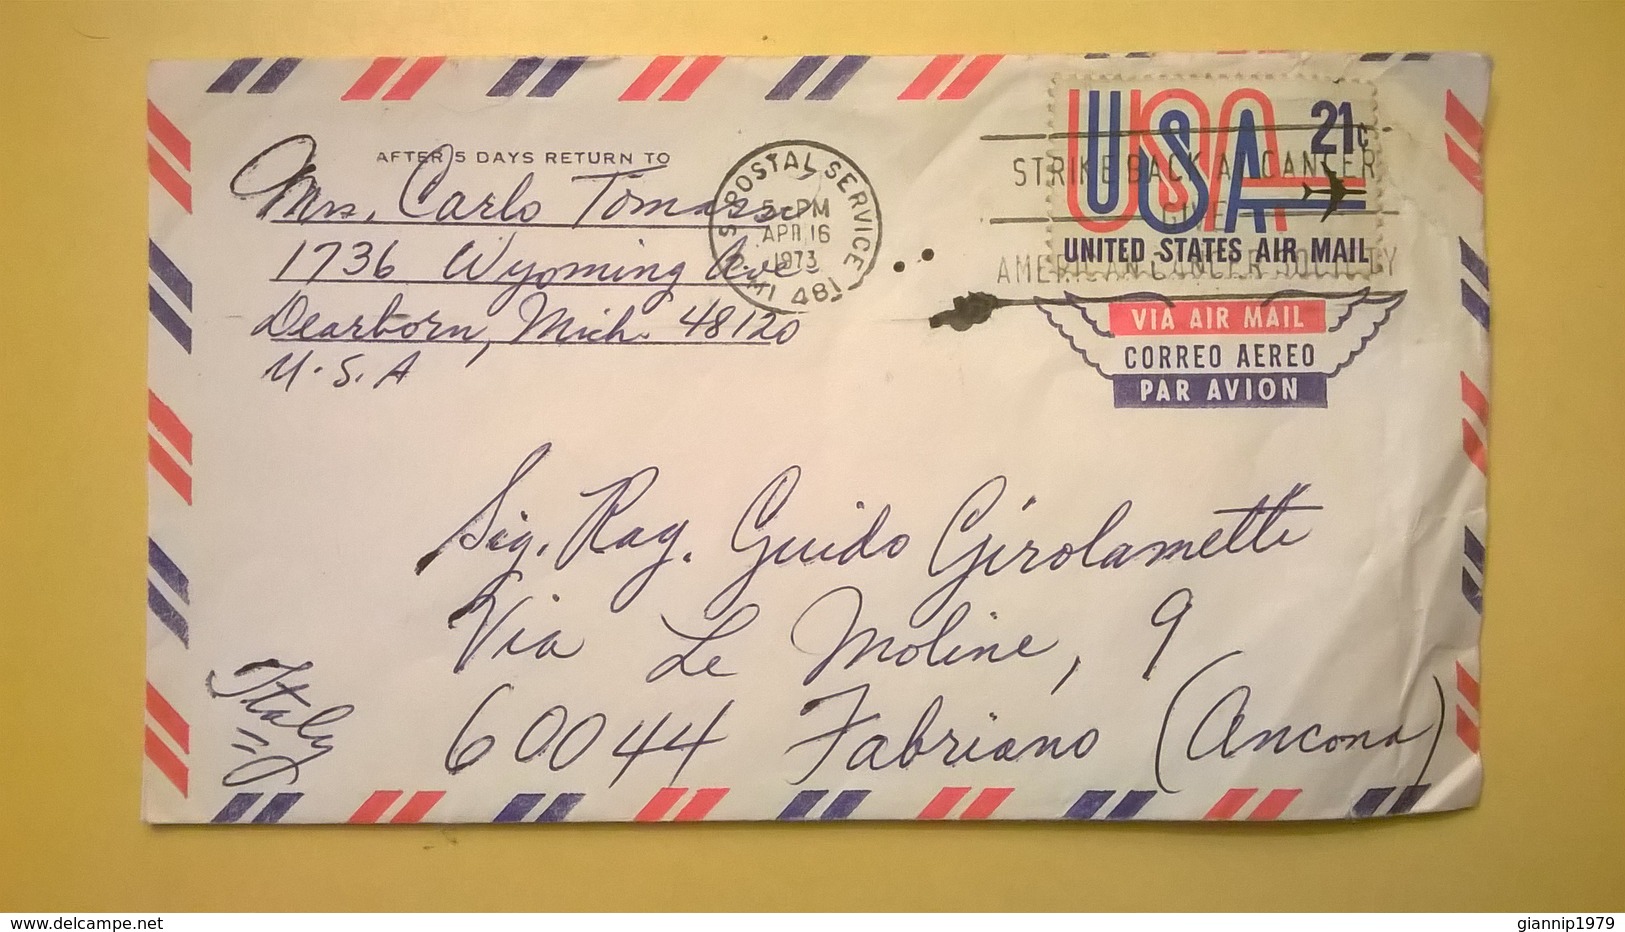 AFTER 5 DAYS RETURN TO
Mrs. Carlo
1736 Wyoming Ave.
Dearborn, Mich. 48120
U.S.A
U S POSTAL SERVICE
MI 481
5 PM
APR 16
1973
USA 21c
UNITED STATES AIR MAIL
STRIKE BACK AT CANCER
GIVE
AMERICAN CANCER SOCIETY
VIA AIR MAIL
CORREO AEREO
PAR AVION
Sig. Rag. Guido Girolametti
Via Le Moline, 9
60044 Fabriano (Ancona)
Italy
www.delcampe.net
giannip1979